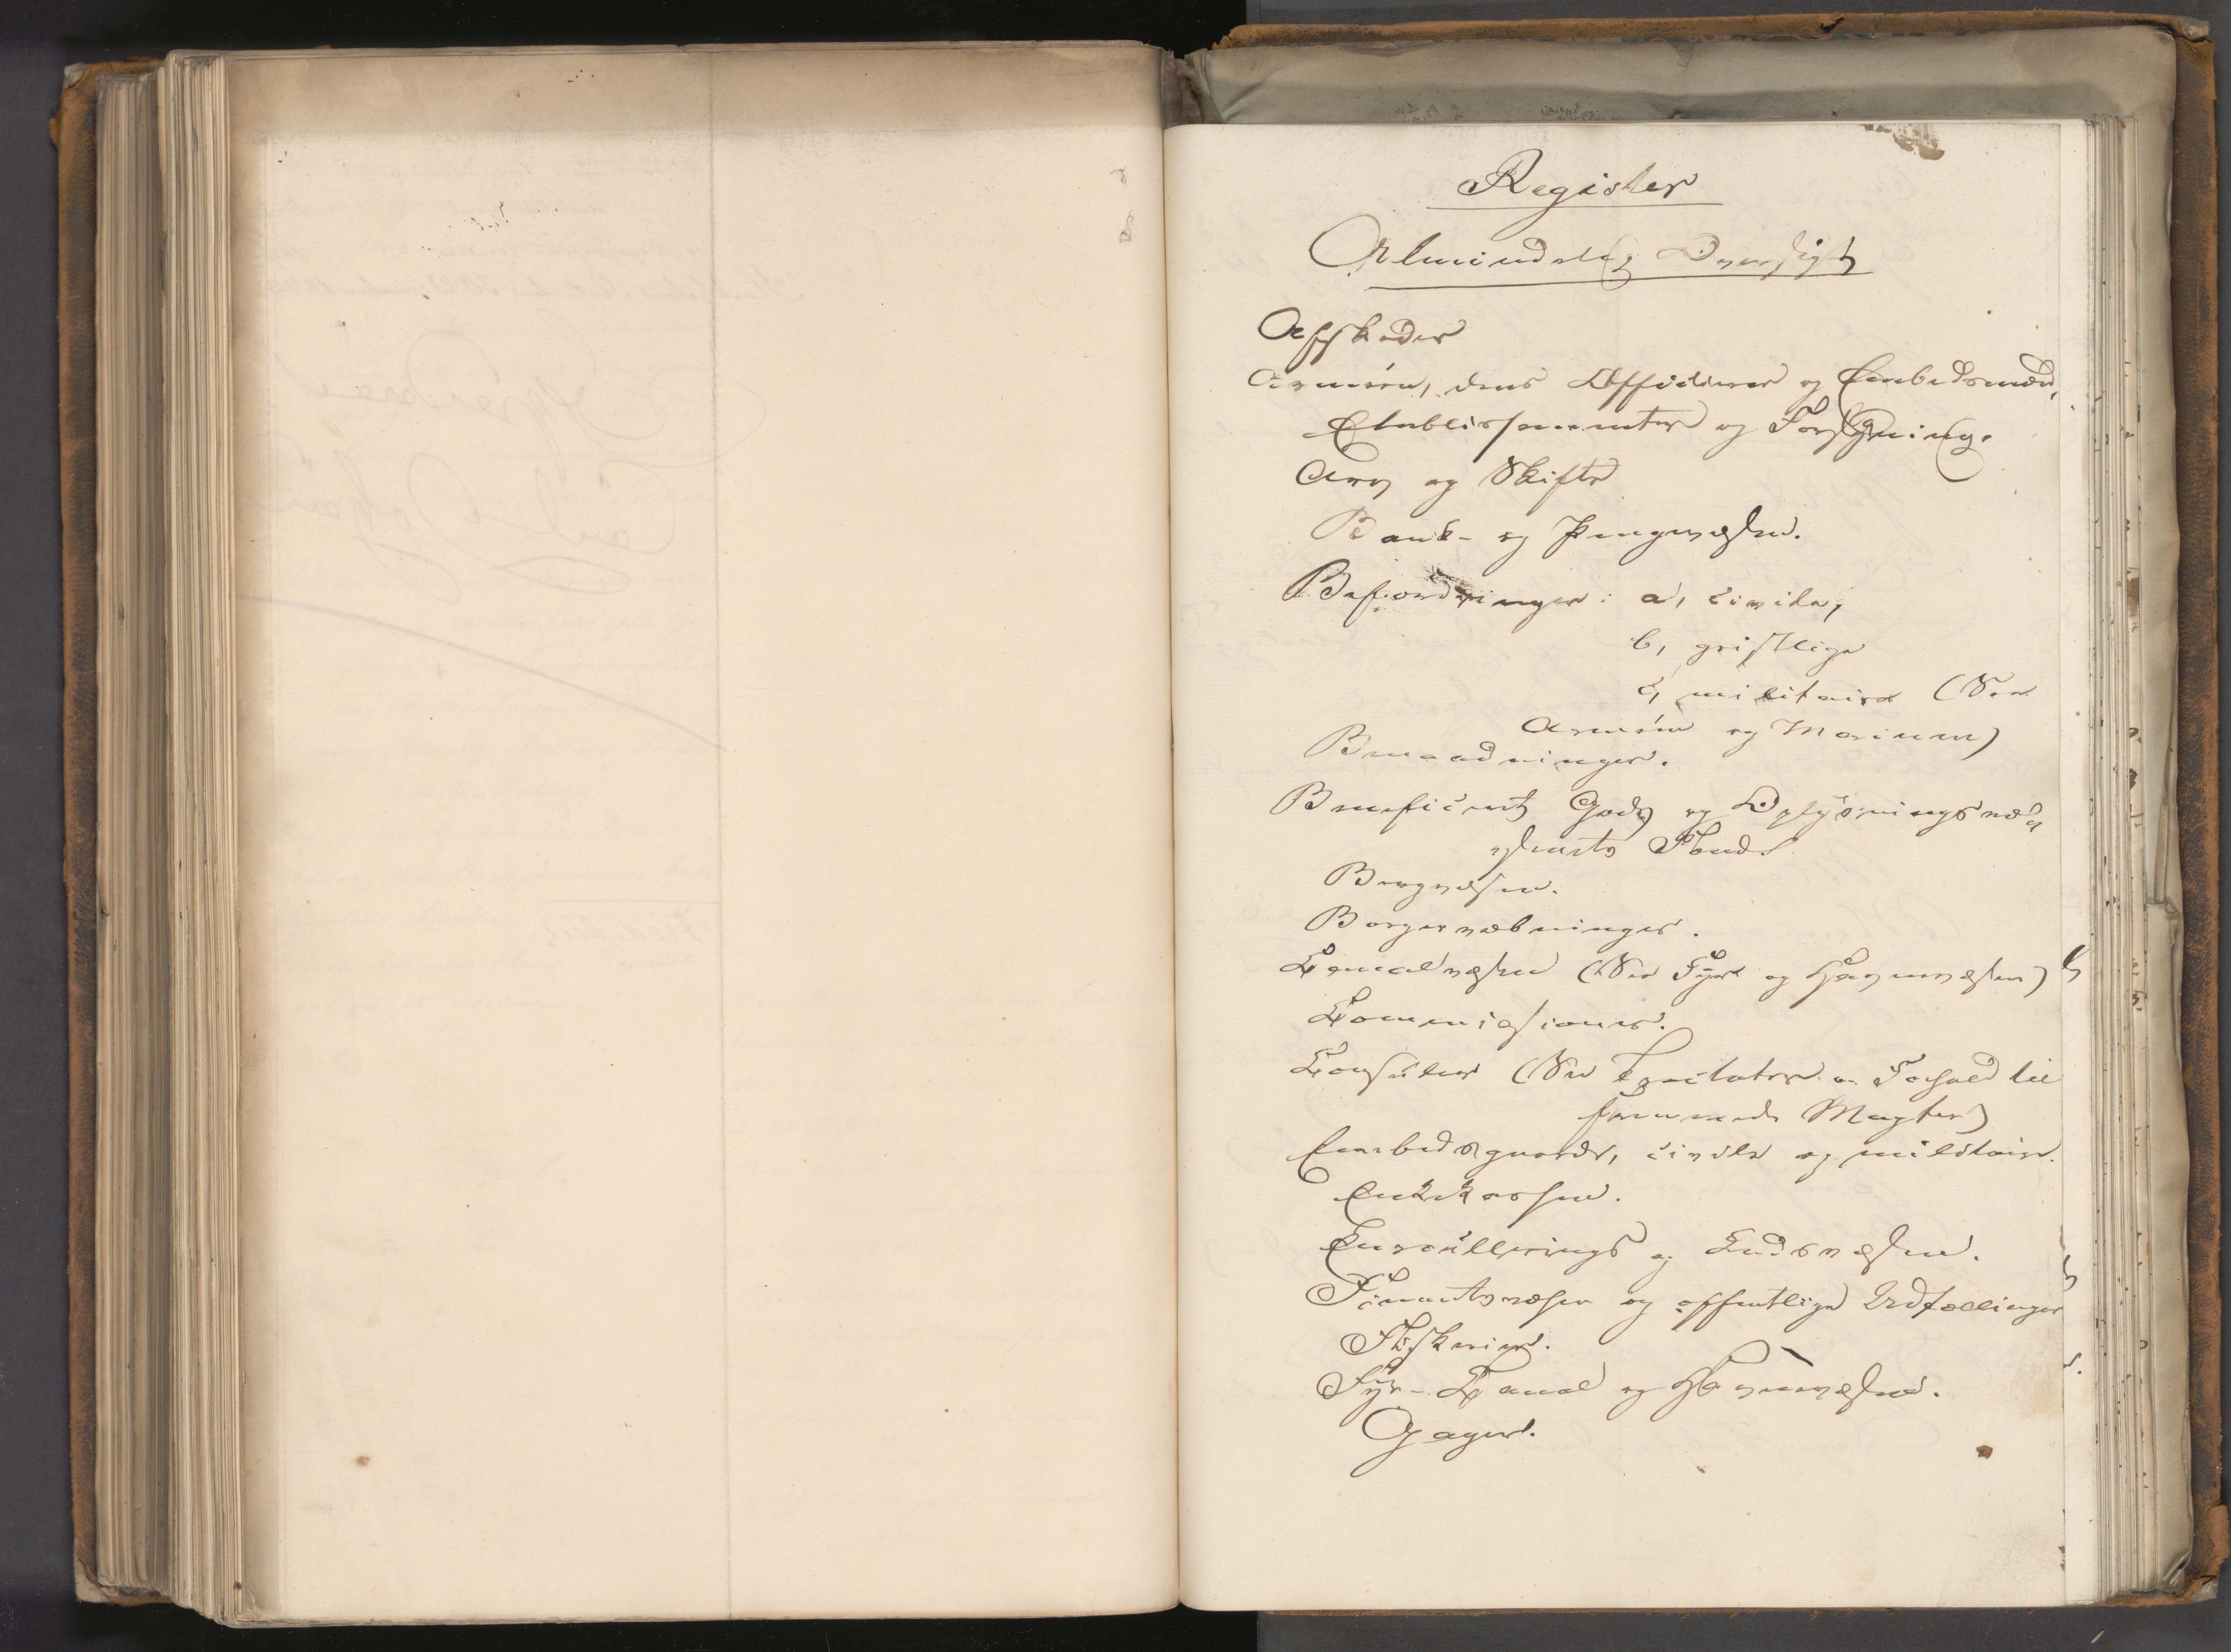 Register
Almindelig Oversigt
Afskeder
Armeen, dens Officierer og Embedsmænd,
Etablissementer og Forsyning.
Arv og Skifte
Bank- og Pengevæsen.
Befordringer: a, civile,
b, geistlige
c, militaire (See
Armeen og Marinen)
Benaadninger.
Beneficeret Gods og Oplysningsvæ-
senets Fond.
Bergvæsen.
Borgervæbninger.
Canalvæsen (See Fyr og Havnevæsen)
Commissioner.
Consuler (See Tractater og Forhold til
fremmede Magter)
Embedsgaarde, civile og militaire.
Enkekassen.
Enroullerings og Lodsvæsen.
Finantsvæsen og offentlige Indtællinger
Fiskerier.
Fyr- Canal og Havnevæsen.
Gager.